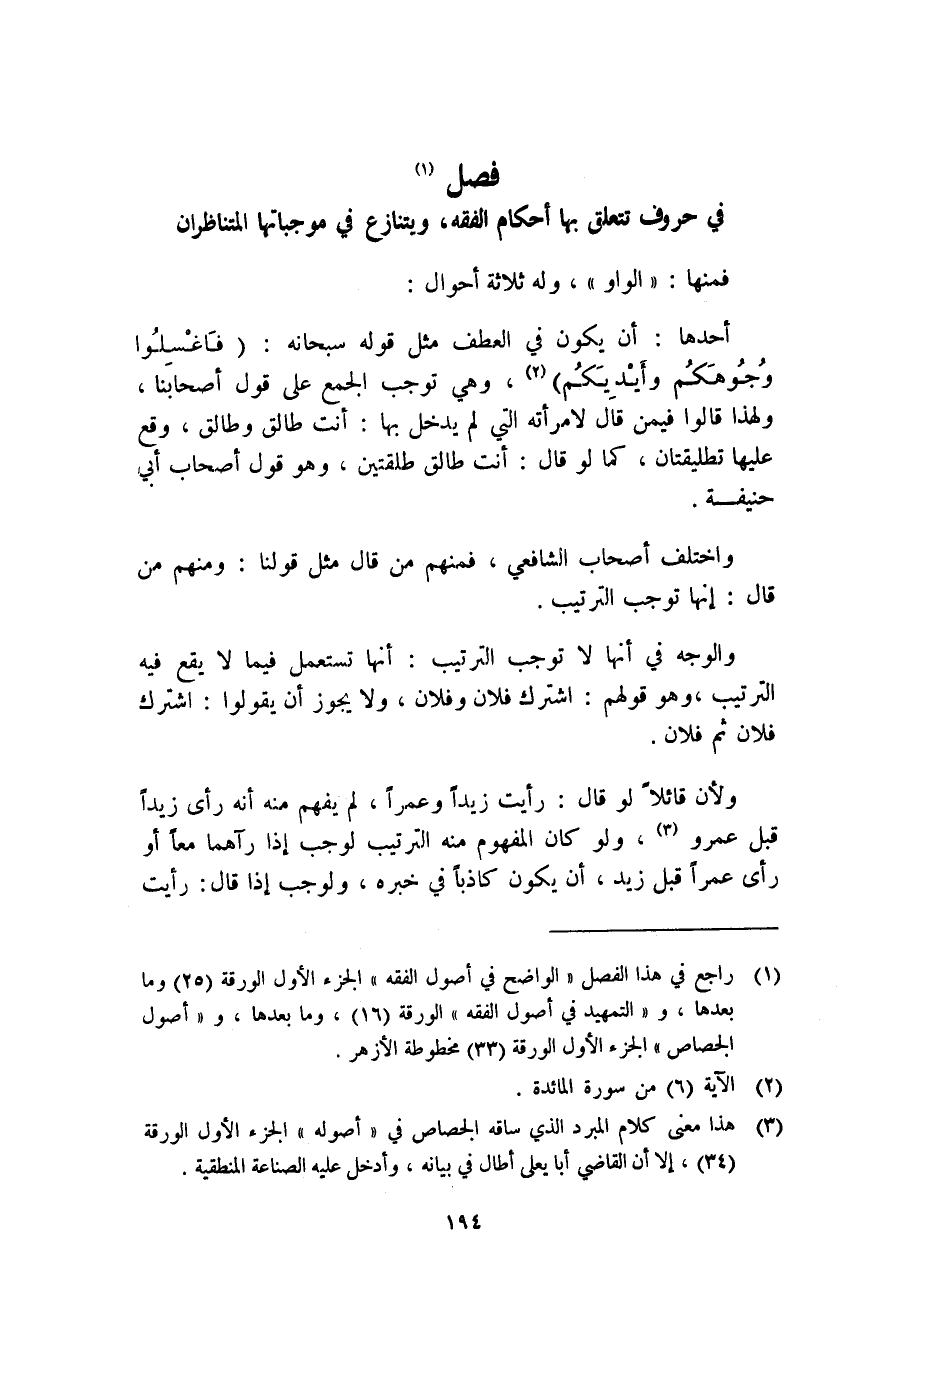 فصل (١)
في حروف تتعلق بها أحكام الفقه، ويتنازع في موجباتها المتناظران
فمنها : « الواو » ، وله ثلاثة أحوال :
أحدها : أن يكون في العطف مثل قوله سبحانه : ( فَاغْسِلُوا
وُجُوهَكُم وأَيْدِيَكُم) (٢) ، وهي توجب الجمع على قول أصحابنا ،
ولهذا قالوا فيمن قال لامرأته التي لم يدخل بها : أنت طالق وطالق ، وقع
عليها تطليقتان ، كما لو قال : أنت طالق طلقتين ، وهو قول أصحاب أبي
حنيفـــة .
واختلف أصحاب الشافعي ، فمنهم من قال مثل قولنا : ومنهم من
قال : إنها توجب الترتيب .
والوجه في أنها لا توجب الترتيب : أنها تستعمل فيما لا يقع فيه
الترتيب ،وهو قولهم : اشترك فلان وفلان ، ولا يجوز أن يقولوا : اشترك
فلان ثم فلان .
ولأن قائلاً لو قال : رأيت زيداً وعمراً ، لم يفهم منه أنه رأى زيداً
قبل عمرو (٣) ، ولو كان المفهوم منه الترتيب لوجب إذا رآهما معاً أو
رأى عمراً قبل زيد ، أن يكون كاذباً في خبره ، ولوجب إذا قال: رأيت
(١) راجع في هذا الفصل « الواضح في أصول الفقه » الجزء الأول الورقة (٢٥) وما
بعدها ، و « التمهيد في أصول الفقه » الورقة (١٦) ، وما بعدها ، و « أصول
الجصاص » الجزء الأول الورقة (٣٣) مخطوطة الأزهر .
(٢) الآية (٦) من سورة المائدة .
(٣) هذا معنى كلام المبرد الذي ساقه الجصاص في « أصوله » الجزء الأول الورقة
(٣٤) ، إلا أن القاضي أبا يعلى أطال في بيانه ، وأدخل عليه الصناعة المنطقية .
١٩٤